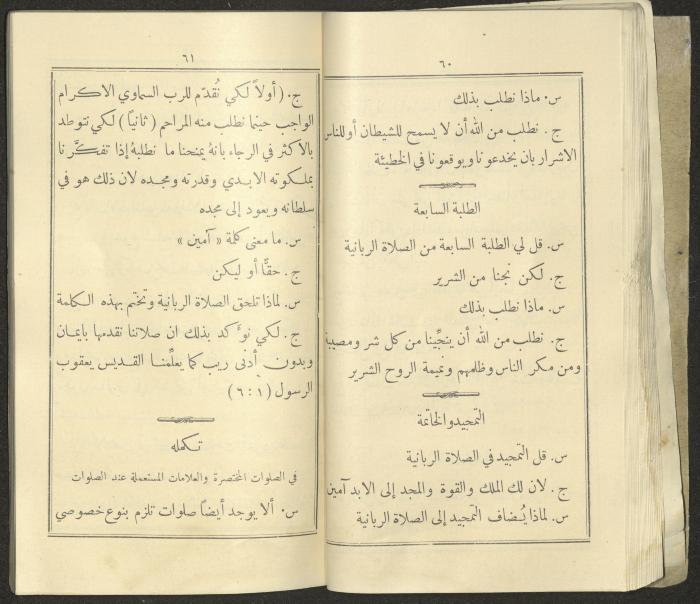 ٦٠
س. ماذا نطلب بذلك
ج. نطلب من الله أن لا يسمح للشيطان أو للناس
الاشرار بان يخدعونا ويوقعونا في الخطيئة
الطلبة السابعة
س. قل لي الطلبة السابعة من الصلاة الربانية
ج. لكن نجنا من الشرير
س. ماذا نطلب بذلك
ج. نطلب من الله أن ينجّينا من كل شر ومصيبة
ومن مكر الناس وظلمهم ونميمة الروح الشرير
التمجيد والخاتمة
س. قل التمجيد في الصلاة الربانية
ج. لان لك الملك والقوة والمجد إلى الابد آمين
س. لماذا يُضاف التمجيد إلى الصلاة الربانية
٦١
ج. (أولاً لكي نُقدّم للرب السماوي الاكرام
الواجب حينما نطلب منه المراحم (ثانياً) لكي نتوطد
بالاكثر في الرجاء بانهُ يمنحنا ما نطلبهُ إذا تفكَّرنا
بملكوته الابدي وقدرته ومجده لان ذلك هو في
سلطانه ويعود إلى مجده
س. ما معنى كلمة « آمين »
ج. حقًّا أو ليكن
س. لماذا تلحق الصلاة الربانية وتختم بهذه الكلمة
ج. لكي نوَّكد بذلك ان صلاتنا نقدمها بايمان
وبدون أدنى ريب كما يعلّمنا القديس يعقوب
الرسول (١ : ٦)
تكمله
في الصلوات المختصرة والعلامات المستعملة عند الصلوات
س. ألا يوجد أيضاً صلوات تلزم بنوع خصوصي